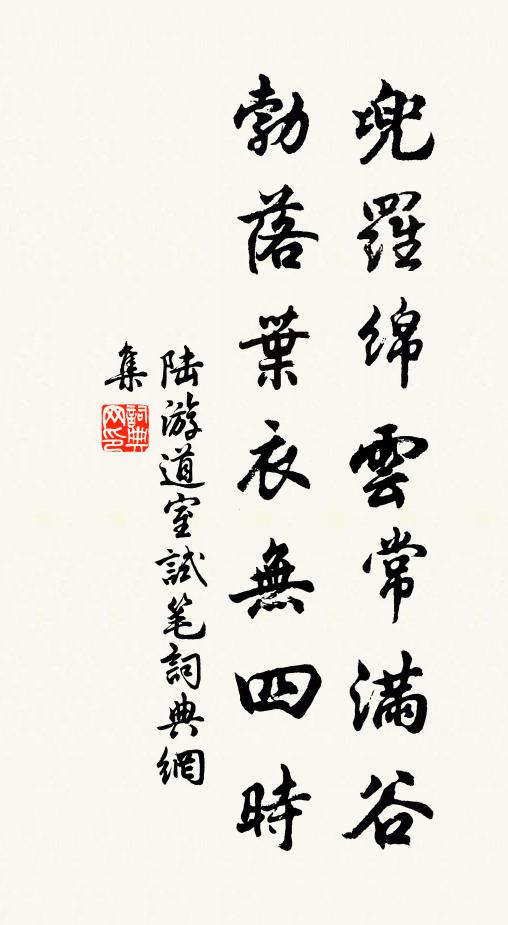 兜羅綿雲常滿谷
勃落葉衣無四時
陸游道室試笔詞典網
集
詞典
网印